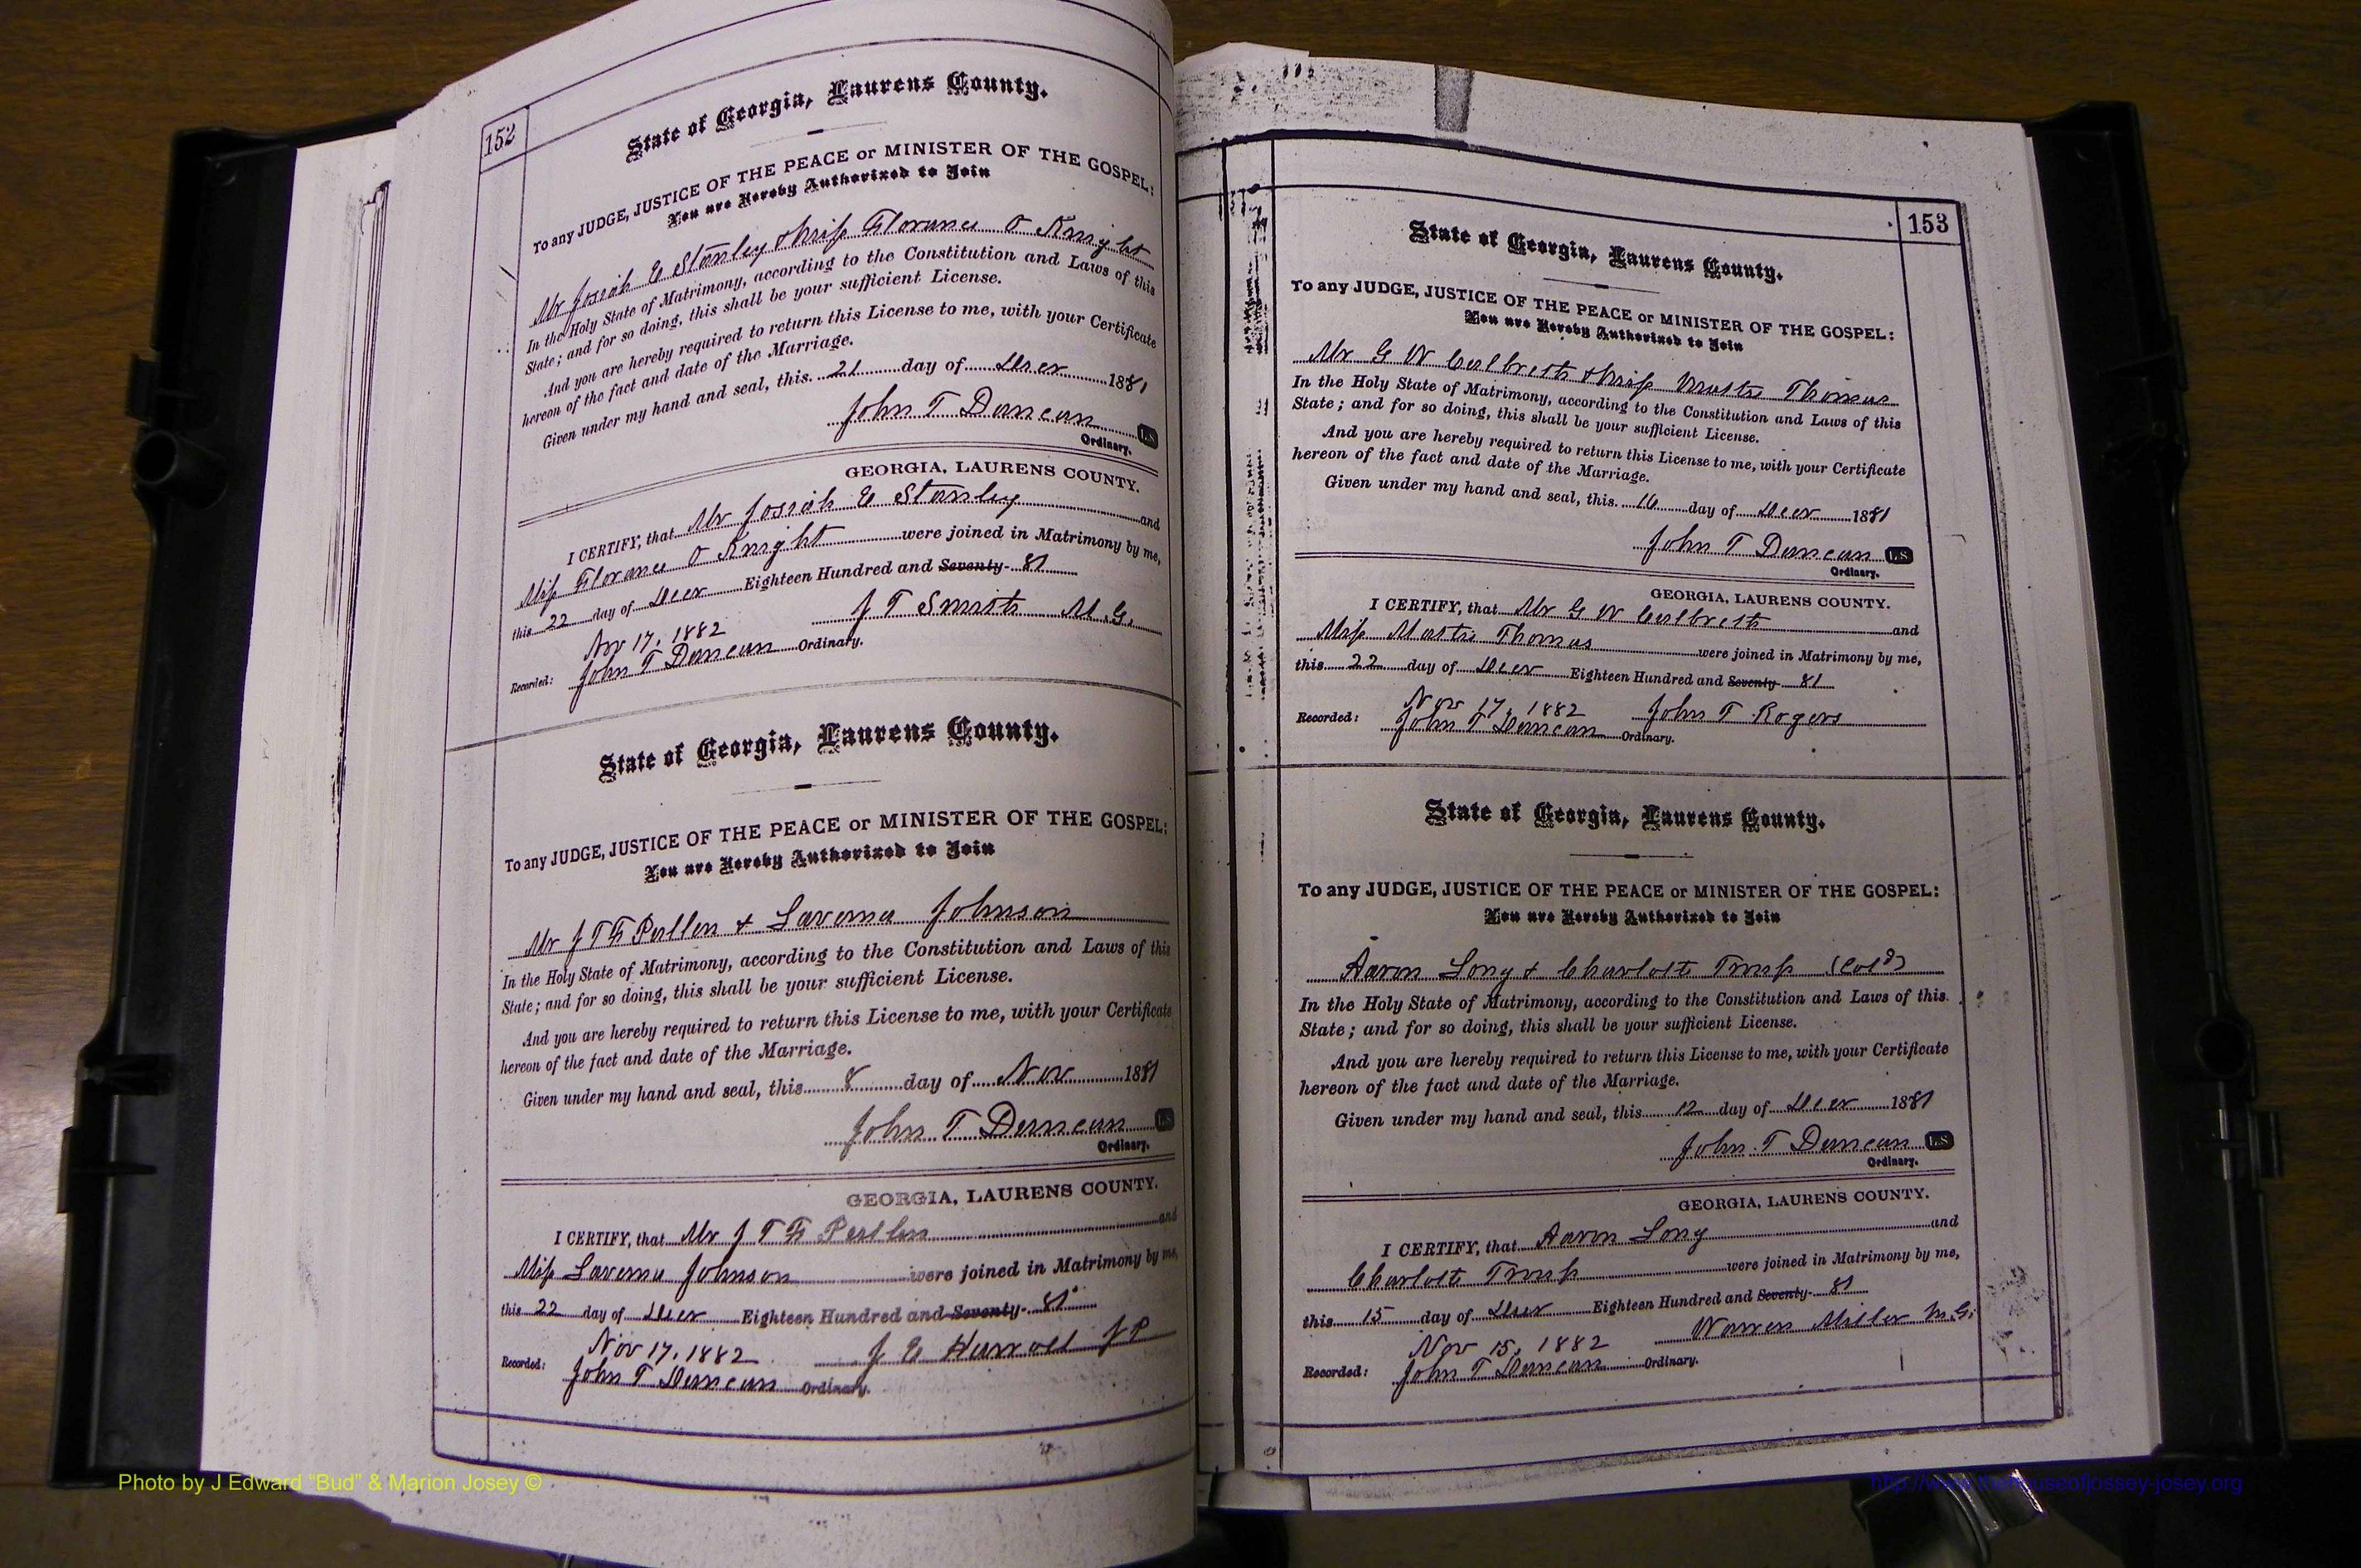 152
State of Georgia, Laurens County.
To any JUDGE, JUSTICE OF THE PEACE or MINISTER OF THE GOSPEL:
You are Hereby Authorized to Join
Mr Josiah E Stanley & Miss Florance O Knight
In the Holy State of Matrimony, according to the Constitution and Laws of this
State; and for so doing, this shall be your sufficient License.
And you are hereby required to return this License to me, with your Certificate
hereon of the fact and date of the Marriage.
Given under my hand and seal, this 21 day of Decr 1881
John T Duncan LS
Ordinary.
GEORGIA, LAURENS COUNTY.
I CERTIFY, that Mr Josiah E Stanley and
Miss Florance O Knight were joined in Matrimony by me,
this 22 day of Decr Eighteen Hundred and Seventy- 81
J T Smith M.G.
Nov 17, 1882
Recorded: John T Duncan Ordinary.
State of Georgia, Laurens County.
To any JUDGE, JUSTICE OF THE PEACE or MINISTER OF THE GOSPEL:
You are Hereby Authorized to Join
Mr J T F Pullen & Johnson
In the Holy State of Matrimony, according to the Constitution and Laws of this
State; and for so doing, this shall be your sufficient License.
And you are hereby required to return this License to me, with your Certificate
hereon of the fact and date of the Marriage.
Given under my hand and seal, this 8 day of Nov 1881
John T Duncan LS
Ordinary.
GEORGIA, LAURENS COUNTY.
I CERTIFY, that Mr J T F Pullen and
Miss Johnson were joined in Matrimony by me,
this 22 day of Decr Eighteen Hundred and Seventy- 81
Nov 17, 1882 J E JP
Recorded: John T Duncan Ordinary.
153
State of Georgia, Laurens County.
To any JUDGE, JUSTICE OF THE PEACE or MINISTER OF THE GOSPEL:
You are Hereby Authorized to Join
Mr G W Culbreth & Miss Thomas
In the Holy State of Matrimony, according to the Constitution and Laws of this
State; and for so doing, this shall be your sufficient License.
And you are hereby required to return this License to me, with your Certificate
hereon of the fact and date of the Marriage.
Given under my hand and seal, this 16 day of Decr 1881
John T Duncan LS
Ordinary.
GEORGIA, LAURENS COUNTY.
I CERTIFY, that Mr G W Culbreth and
Miss Thomas were joined in Matrimony by me,
this 22 day of Decr Eighteen Hundred and Seventy- 81
Nov 17, 1882 John T Rogers
Recorded: John T Duncan Ordinary.
State of Georgia, Laurens County.
To any JUDGE, JUSTICE OF THE PEACE or MINISTER OF THE GOSPEL:
You are Hereby Authorized to Join
Aaron Long & Charlott (Cold)
In the Holy State of Matrimony, according to the Constitution and Laws of this
State; and for so doing, this shall be your sufficient License.
And you are hereby required to return this License to me, with your Certificate
hereon of the fact and date of the Marriage.
Given under my hand and seal, this 12 day of Decr 1881
John T Duncan LS
Ordinary.
GEORGIA, LAURENS COUNTY.
I CERTIFY, that Aaron Long and
Charlott were joined in Matrimony by me,
this 15 day of Decr Eighteen Hundred and Seventy- 81
Nov 15, 1882 Warren Miller M.G.
Recorded: John T Duncan Ordinary.
Photo by J Edward “Bud” & Marion Josey ©
http://www.thehouseofjossey-josey.org